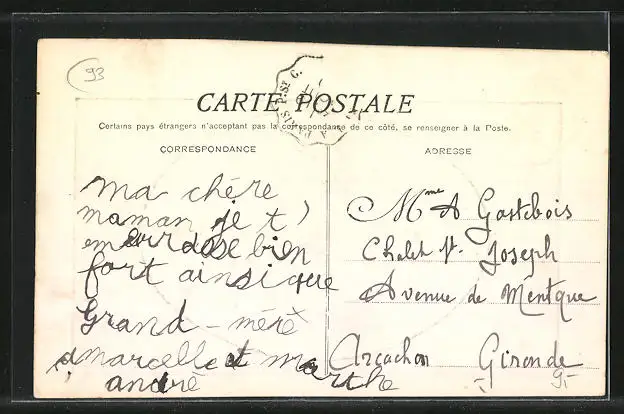 93
CARTE POSTALE
Certains pays étrangers n'acceptant pas la correspondance de ce côté, se renseigner à la Poste.
CORRESPONDANCE
ma chère
maman je t'
embrasse bien
fort ainsi que
Grand-mère
marcelle et marthe
andré
ADRESSE
Mme A Gastebois
Chalet St. Joseph
Avenue de Mentque
Arcachon Gironde
9,-